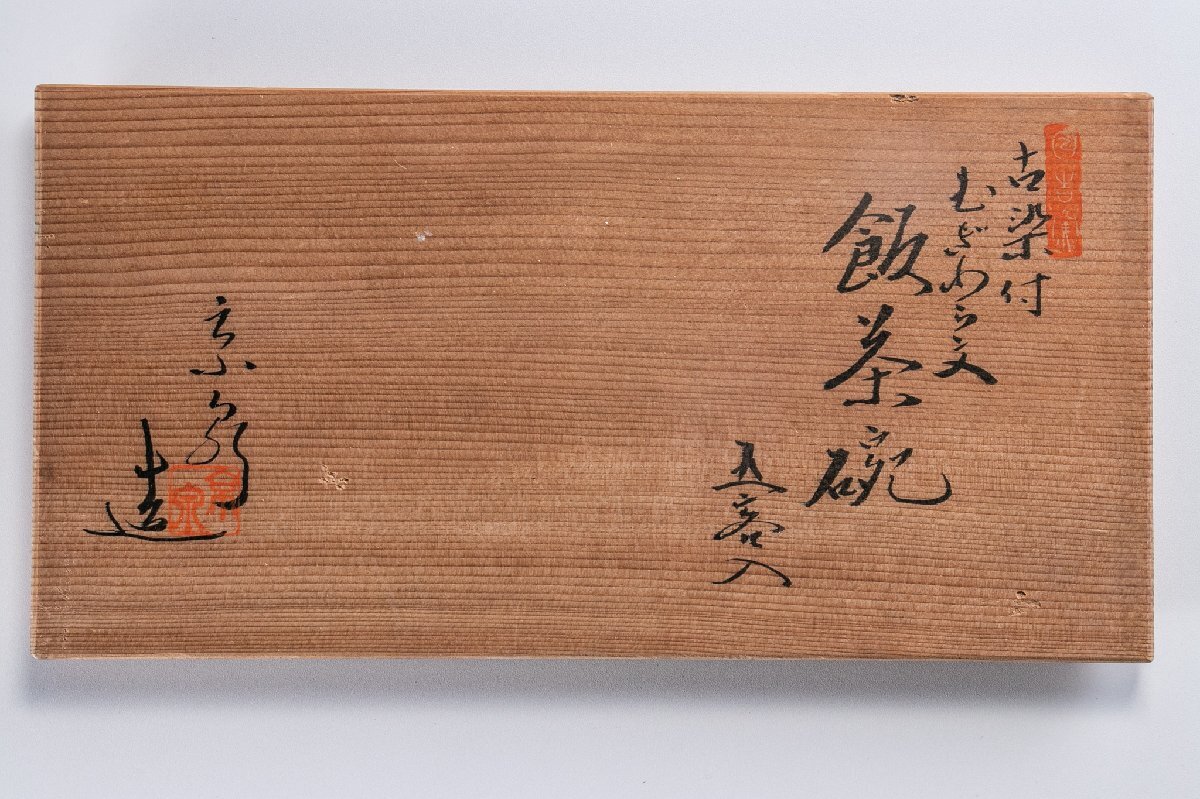 古染付
むぎわら文
飯茶碗
五客入
造